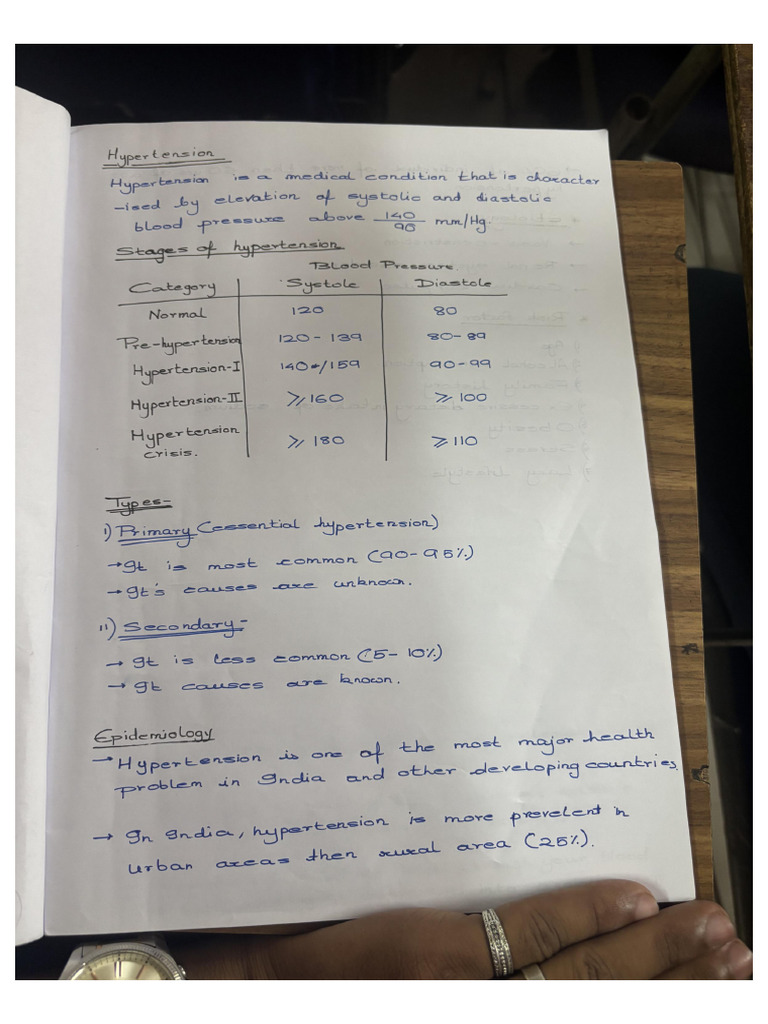 Hypertension
Hypertension is a medical condition that is character
-ised by elevation of systolic and diastolic
blood pressure above 140/90 mm/Hg.
Stages of hypertension
Blood Pressure
Category Systole Diastole
Normal 120 80
Pre-hypertension 120 - 139 80 - 89
Hypertension-I 140 /159 90 - 99
Hypertension-II ⩾ 160 ⩾ 100
Hypertension crisis. ⩾ 180 ⩾ 110
Types-
i) Primary (essential hypertension)
→ It is most common (90-95%)
→ It's causes are unknown.
ii) Secondary-
→ It is less common (5-10%)
→ It causes are known.
Epidemiology
→ Hypertension is one of the most major health
problem in India and other developing countries.
→ In India, hypertension is more prevelent in
urban areas then rural area (25%).